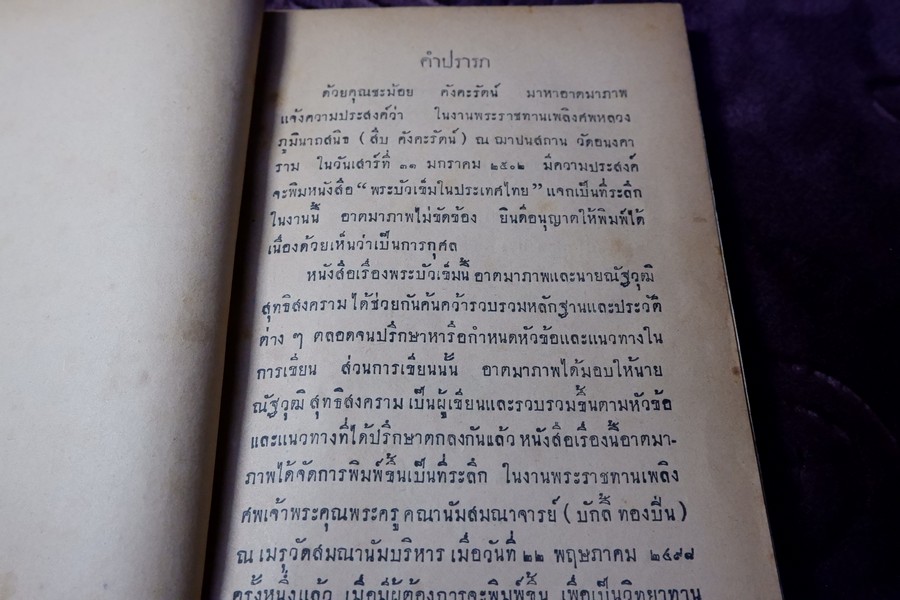 คำปรารภ
ด้วยคุณชะม้อย คังคะรัตน์ มาหาอาตมาภาพ
แจ้งความประสงค์ว่า ในงานพระราชทานเพลิงศพหลวง
ภูมินาถสนิธ (สืบ คังคะรัตน์) ณ ฌาปนสถาน วัดอนงคา
ราม ในวันเสาร์ที่ ๓๑ มกราคม ๒๕๐๒ มีความประสงค์
จะพิมพ์หนังสือ “พระบัวเข็มในประเทศไทย” แจกเป็นที่ระลึก
ในงานนี้ อาตมาภาพไม่ขัดข้อง ยินดีอนุญาตให้พิมพ์ได้
เนื่องด้วยเห็นว่าเป็นการกุศล
หนังสือเรื่องพระบัวเข็มนี้ อาตมาภาพและนายณัฐวุฒิ
สุทธิสงคราม ได้ช่วยกันค้นคว้ารวบรวมหลักฐานและประวัติ
ต่าง ๆ ตลอดจนปรึกษาหารือกำหนดหัวข้อและแนวทางใน
การเขียน ส่วนการเขียนนั้น อาตมาภาพได้มอบให้นาย
ณัฐวุฒิ สุทธิสงคราม เป็นผู้เขียนและรวบรวมขึ้นตามหัวข้อ
และแนวทางที่ได้ปรึกษาตกลงกันแล้ว หนังสือเรื่องนี้อาตมา-
ภาพได้จัดการพิมพ์ขึ้นเป็นที่ระลึก ในงานพระราชทานเพลิง
ศพเจ้าพระคุณพระครู คณานัมสมณาจารย์ (บักลี้ ทองปี่น)
ณ เมรุวัดสมณานัมบริหาร เมื่อวันที่ ๒๒ พฤษภาคม ๒๔๙๘
ครั้งหนึ่งแล้ว เมื่อมีผู้ต้องการจะพิมพ์ขึ้น เพื่อเป็นวิทยาทาน